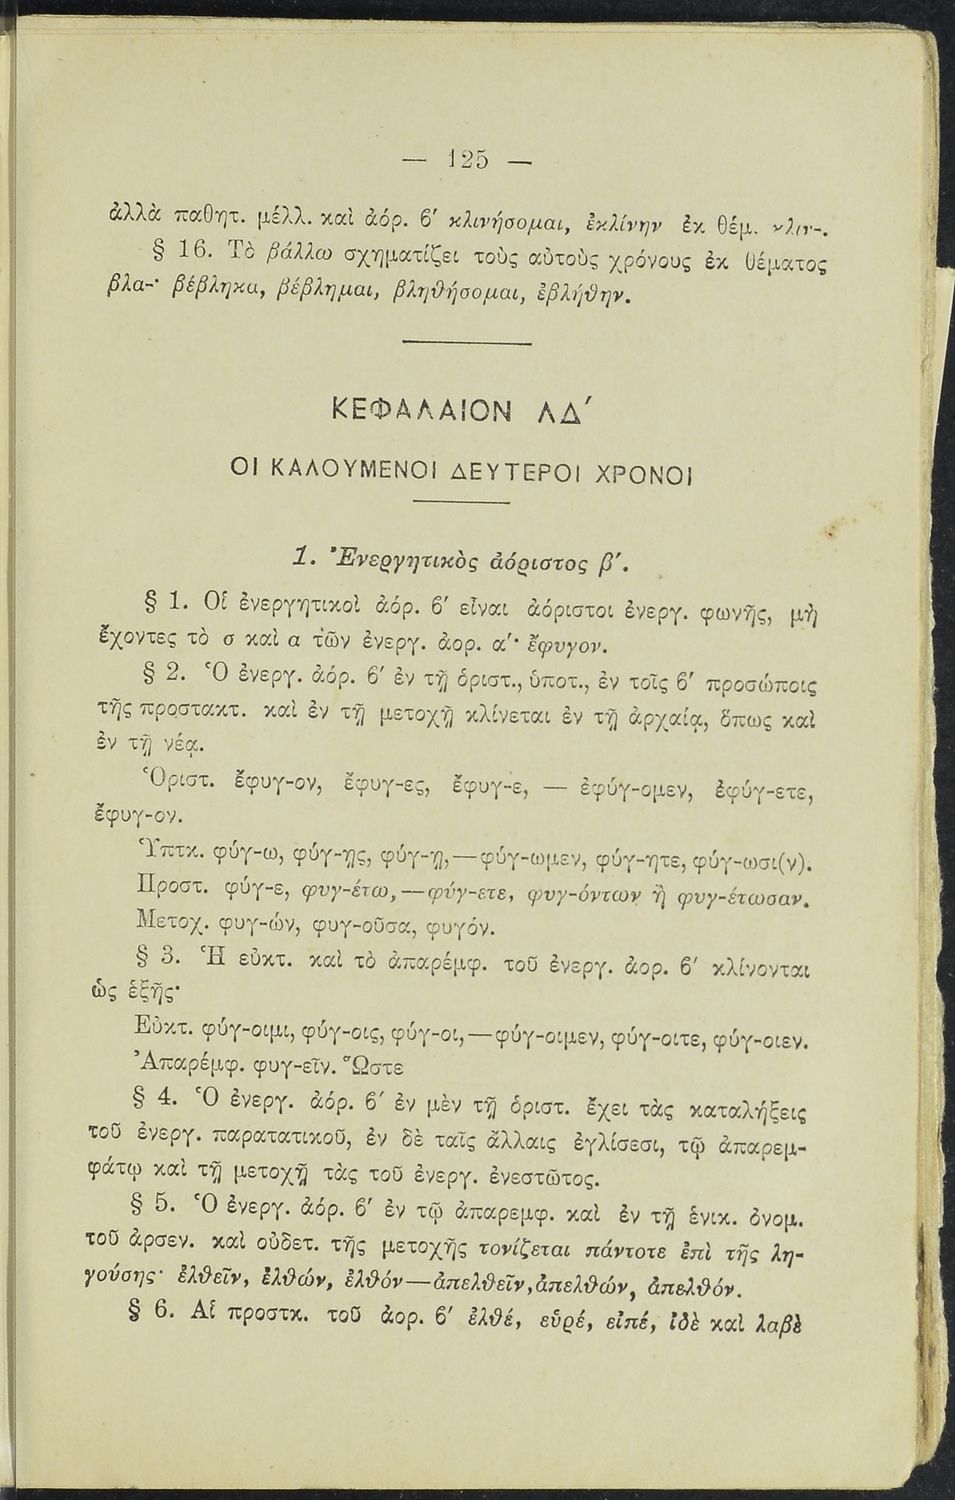 — 125 —
ἀλλὰ παθητ. μέλλ. καὶ ἀόρ. β′ κλινήσομαι, ἐκλίνην ἐκ θέμ. κλιν-.
§ 16. Τὸ βάλλω σχηματίζει τοὺς αὐτοὺς χρόνους ἐκ θέματος
βλα-· βέβληκα, βέβλημαι, βληθήσομαι, ἐβλήθην.
ΚΕΦΑΛΑΙΟΝ ΛΔ′
ΟΙ ΚΑΛΟΥΜΕΝΟΙ ΔΕΥΤΕΡΟΙ ΧΡΟΝΟΙ
1. Ἐνεργητικὸς ἀόριστος β′.
§ 1. Οἱ ἐνεργητικοὶ ἀόρ. β′ εἶναι ἀόριστοι ἐνεργ. φωνῆς, μὴ
ἔχοντες τὸ σ καὶ α τῶν ἐνεργ. ἀορ. α′· ἔφυγον.
§ 2. Ὁ ἐνεργ. ἀόρ. β′ ἐν τῇ ὁριστ., ὑποτ., ἐν τοῖς β′ προσώποις
τῆς προστακτ. καὶ ἐν τῇ μετοχῇ κλίνεται ἐν τῇ ἀρχαίᾳ, ὅπως καὶ
ἐν τῇ νέᾳ.
Ὁριστ. ἔφυγ-ον, ἔφυγ-ες, ἔφυγ-ε, — ἐφύγ-ομεν, ἐφύγ-ετε,
ἔφυγ-ον.
Ὑπτκ. φύγ-ω, φύγ-ῃς, φύγ-ῃ,—φύγ-ωμεν, φύγ-ητε, φύγ-ωσι(ν).
Προστ. φύγ-ε, φυγ-έτω,—φύγ-ετε, φυγ-όντων ἢ φυγ-έτωσαν.
Μετοχ. φυγ-ών, φυγ-οῦσα, φυγόν.
§ 3. Ἡ εὐκτ. καὶ τὸ ἀπαρέμφ. τοῦ ἐνεργ. ἀορ. β′ κλίνονται
ὡς ἑξῆς·
Εὐκτ. φύγ-οιμι, φύγ-οις, φύγ-οι,—φύγ-οιμεν, φύγ-οιτε, φύγ-οιεν.
Ἀπαρέμφ. φυγ-εῖν. Ὥστε
§ 4. Ὁ ἐνεργ. ἀόρ. β′ ἐν μὲν τῇ ὁριστ. ἔχει τὰς καταλήξεις
τοῦ ἐνεργ. παρατατικοῦ, ἐν δὲ ταῖς ἄλλαις ἐγλίσεσι, τῷ ἀπαρεμ-
φάτῳ καὶ τῇ μετοχῇ τὰς τοῦ ἐνεργ. ἐνεστῶτος.
§ 5. Ὁ ἐνεργ. ἀόρ. β′ ἐν τῷ ἀπαρεμφ. καὶ ἐν τῇ ἑνικ. ὀνομ.
τοῦ ἀρσεν. καὶ οὐδετ. τῆς μετοχῆς τονίζεται πάντοτε ἐπὶ τῆς λη-
γούσης· ἐλθεῖν, ἐλθών, ἐλθόν—ἀπελθεῖν, ἀπελθών, ἀπελθόν.
§ 6. Αἱ προστκ. τοῦ ἀορ. β′ ἐλθέ, εὑρέ, εἰπέ, ἰδὲ καὶ λαβὲ